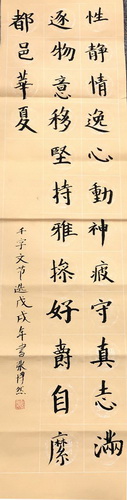 性靜情逸心動神疲守真志滿
逐物意移堅持雅操好爵自縻
都邑華夏
千字文节选戊戌年